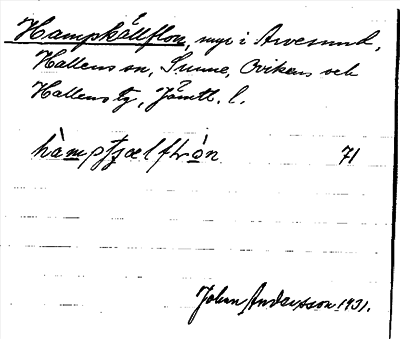 Hampkällflon, myr i Arvesund,
Hallens sn, Sunne, Ovikens och
Hallens tg, Jämtl. l.
hàmpꞩælftròn 71
Johan Andersson 1931.